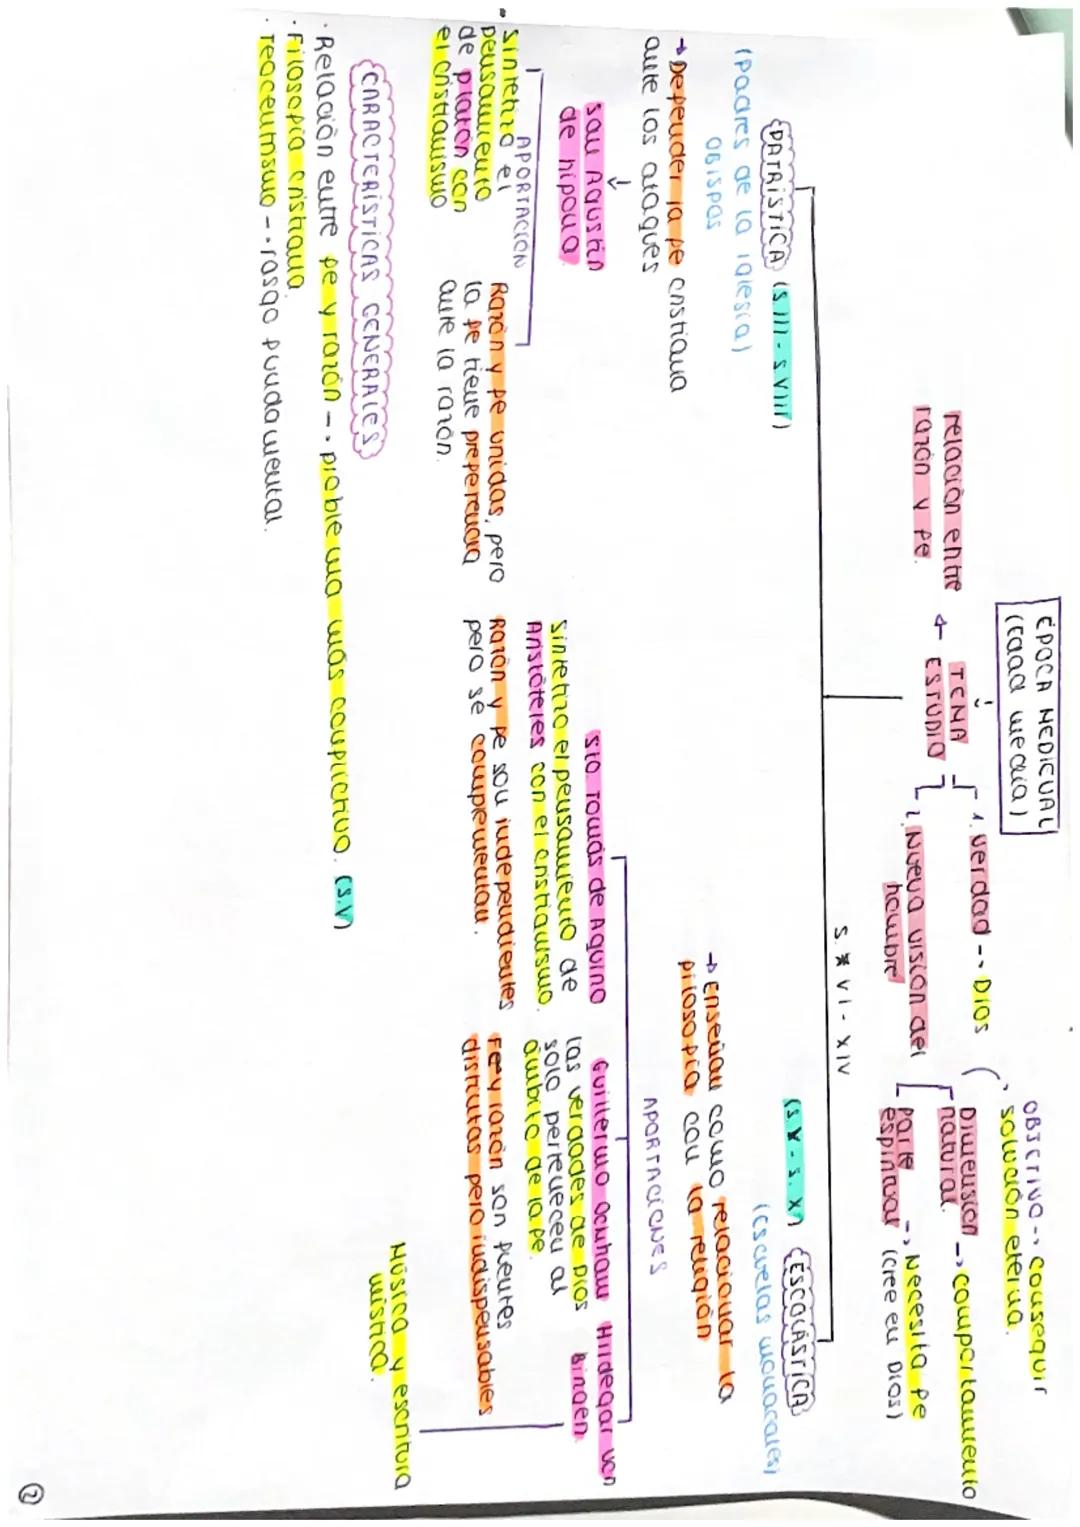 ÉPOCA MEDIEVAL
(Edad media)
relación entre
razón y fe.
TEMA
ESTUDIO
1. Verdad --> Dios
OBJETIVO --> conseguir
solución eterna.
2. Nueva visión del
hombre
Dimensión --> comportamiento
natural.
Parte --> Necesita fe
espiritual (cree en Dios)
S. VI - XIV
PATRÍSTICA (s III - s VIII)
(Padres de la iglesia)
OBISPOS
→ Defender la fe cristiana
ante los ataques
San Agustín
de hipona.
APORTACIÓN
• Sintetizó el
pensamiento
de platón con
el cristianismo
Razón y fe unidas, pero
la fe tiene preferencia
ante la razón.
ESCOLÁSTICA
(Escuelas monacales)
→ Enseñan como relacionar la
filosofía con la religión
APORTACIONES
Sto. Tomás de Aquino
Sintetizó el pensamiento de
Aristóteles con el cristianismo.
Razón y fe son independientes
pero se complementan.
Guillermo Ockham
las verdades de Dios
solo pertenecen al
ámbito de la fe.
Fe y razón son fuentes
distintas pero indispensables
Hildegar von
Bingen.
Música y escritura
mística.
CARACTERÍSTICAS GENERALES
· Relación entre fe y razón --> problema más conflictivo. (s.V)
· Filosofía cristiana.
· Teocentrismo --> rasgo fundamental.
2